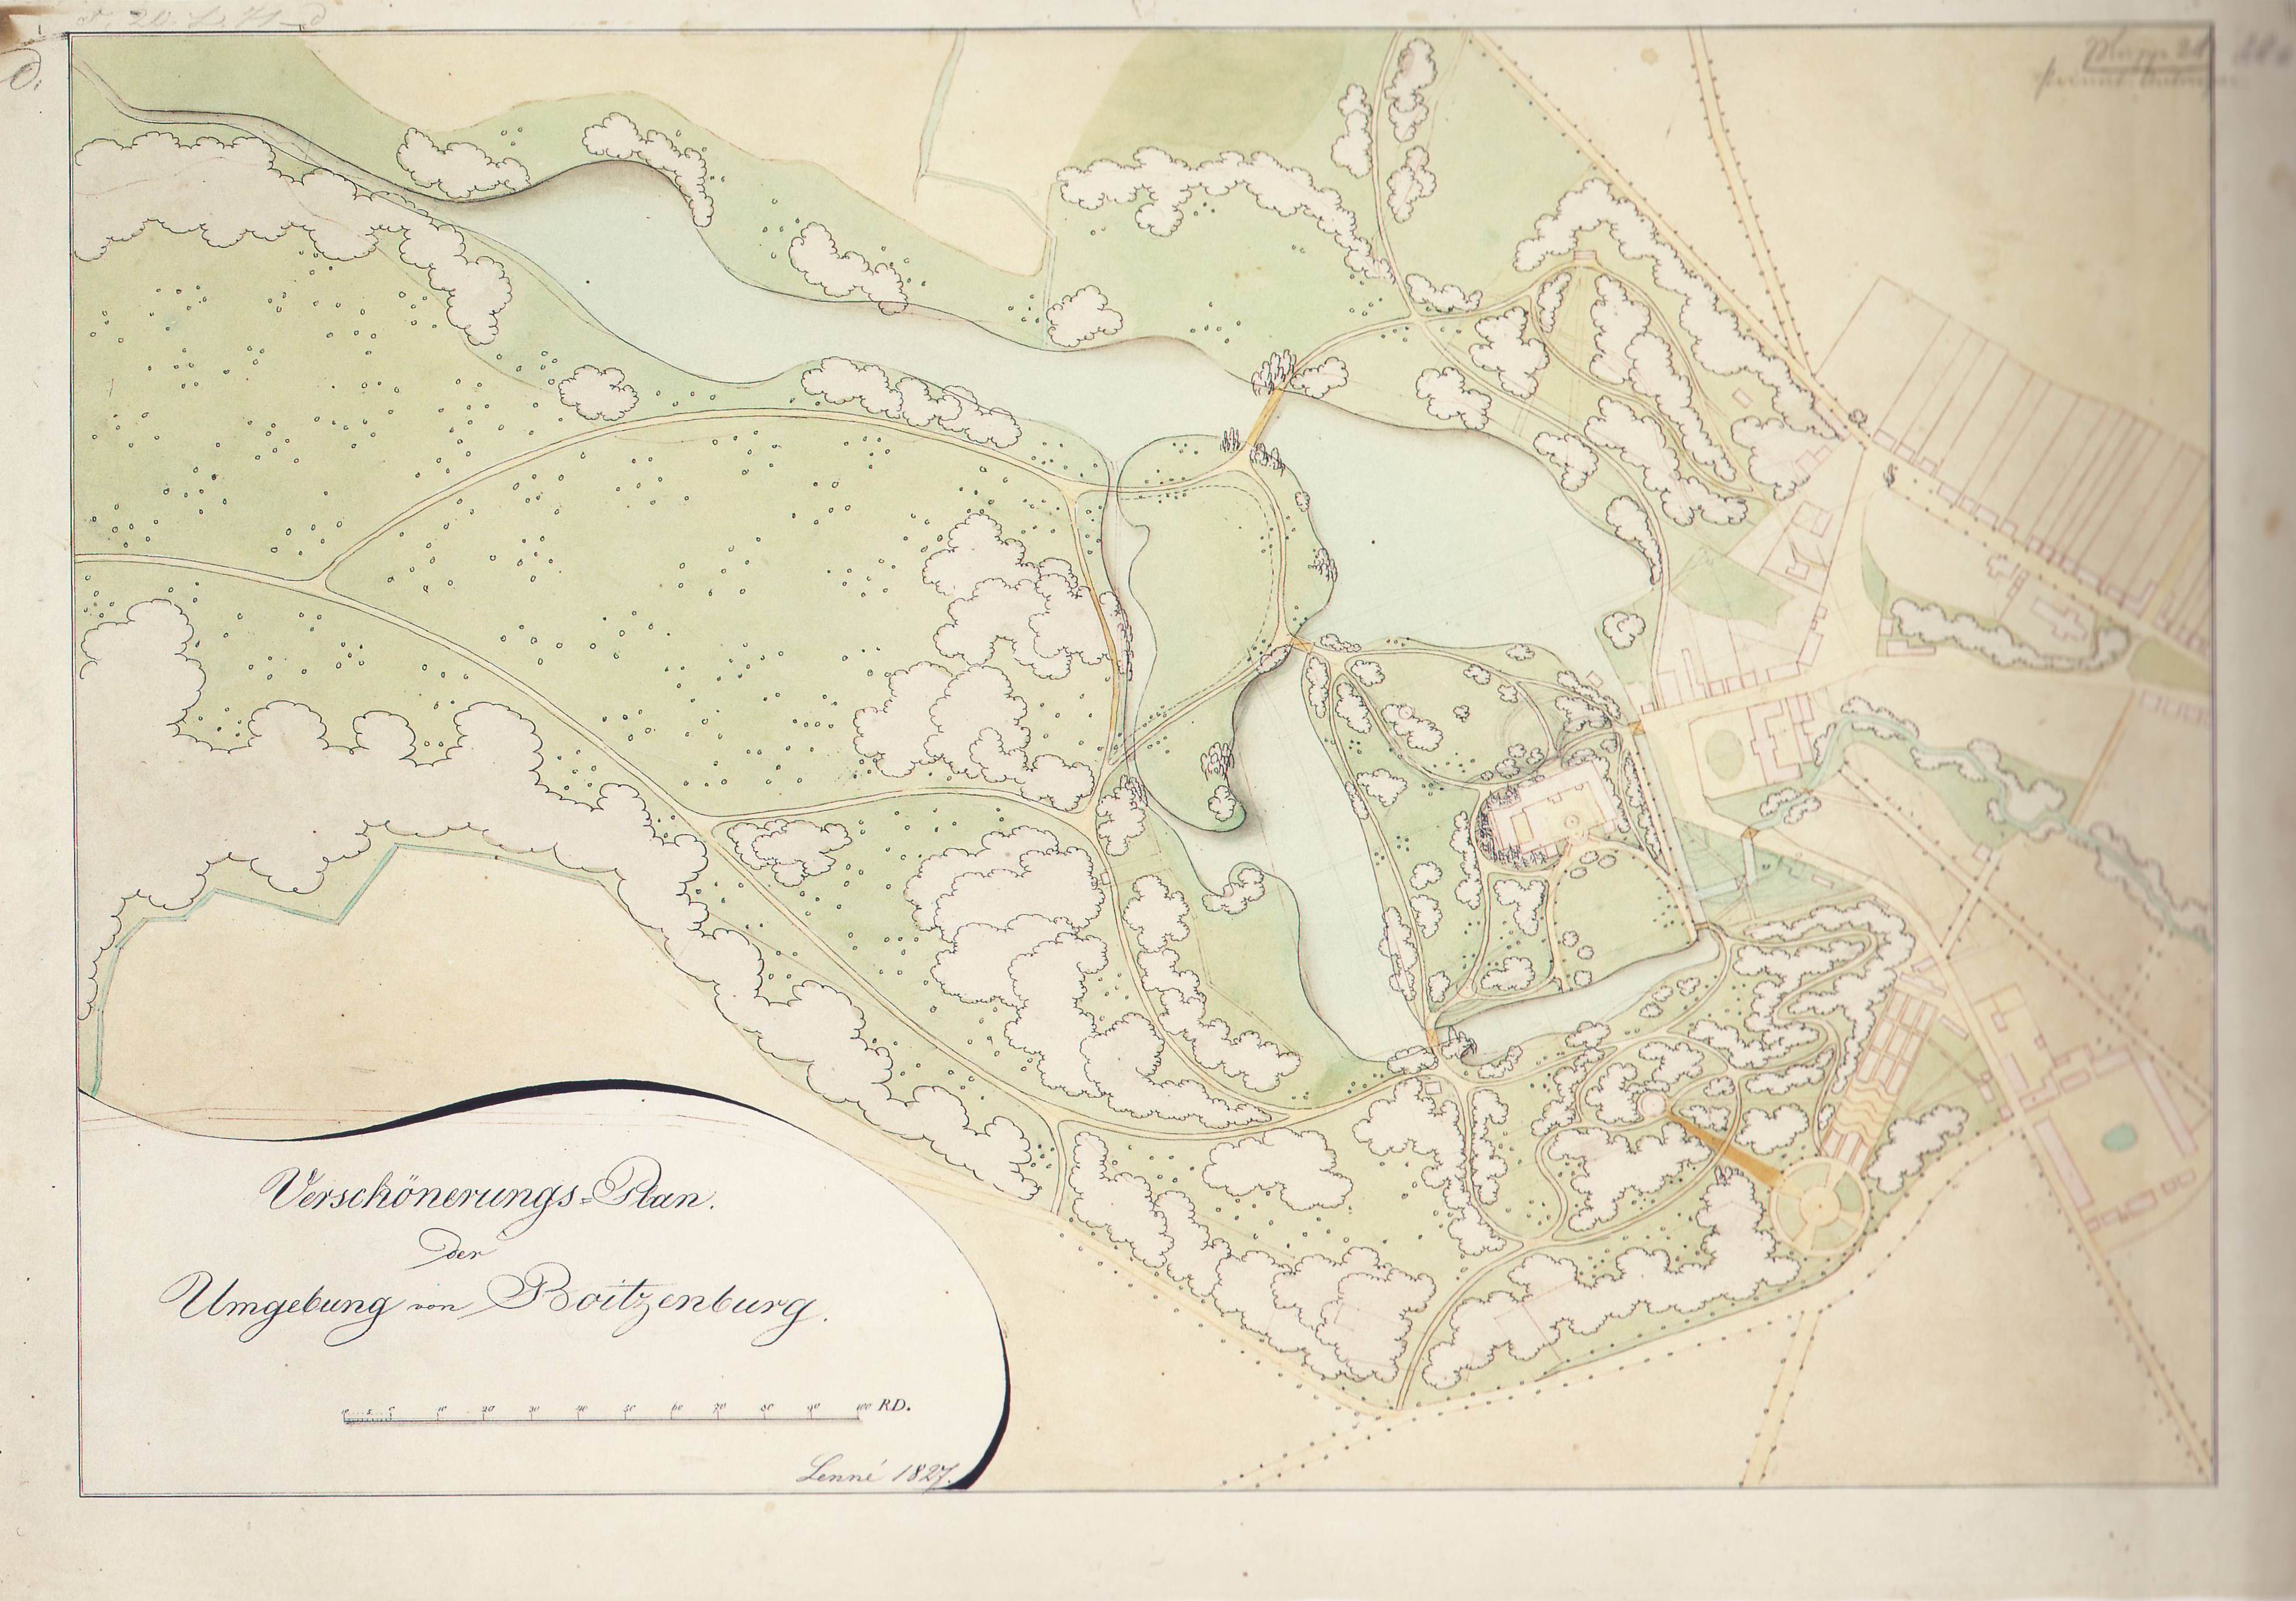 Verschönerungs=Plan.
der
Umgebung von Boitzenburg.
10 5 0 10 20 30 40 50 60 70 80 90 100 RD.
Lenné 1827.